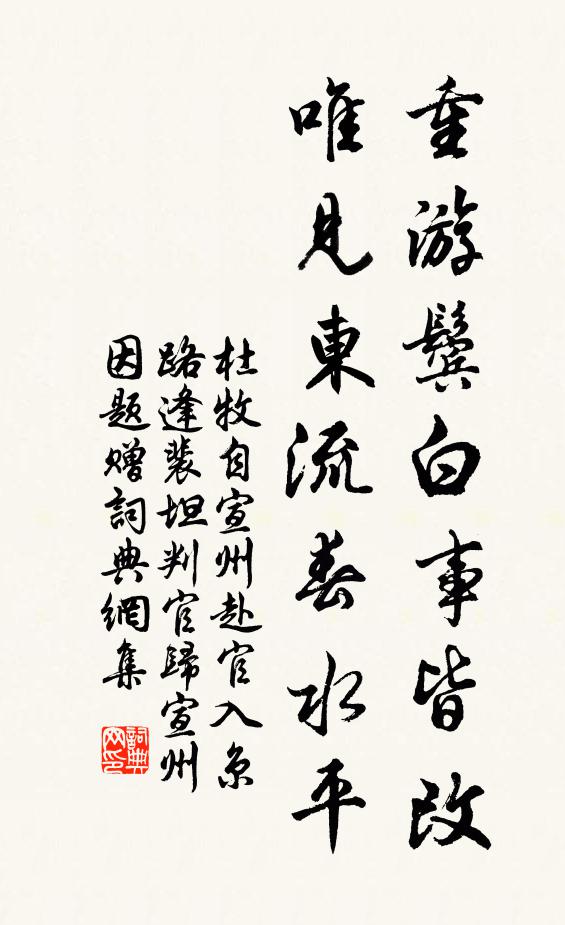 重游鬓白事皆改
唯見東流春水平
杜牧自宣州赴官入京
路逢裴坦判官歸宣州
因題贈詞典網集
詞典
网印